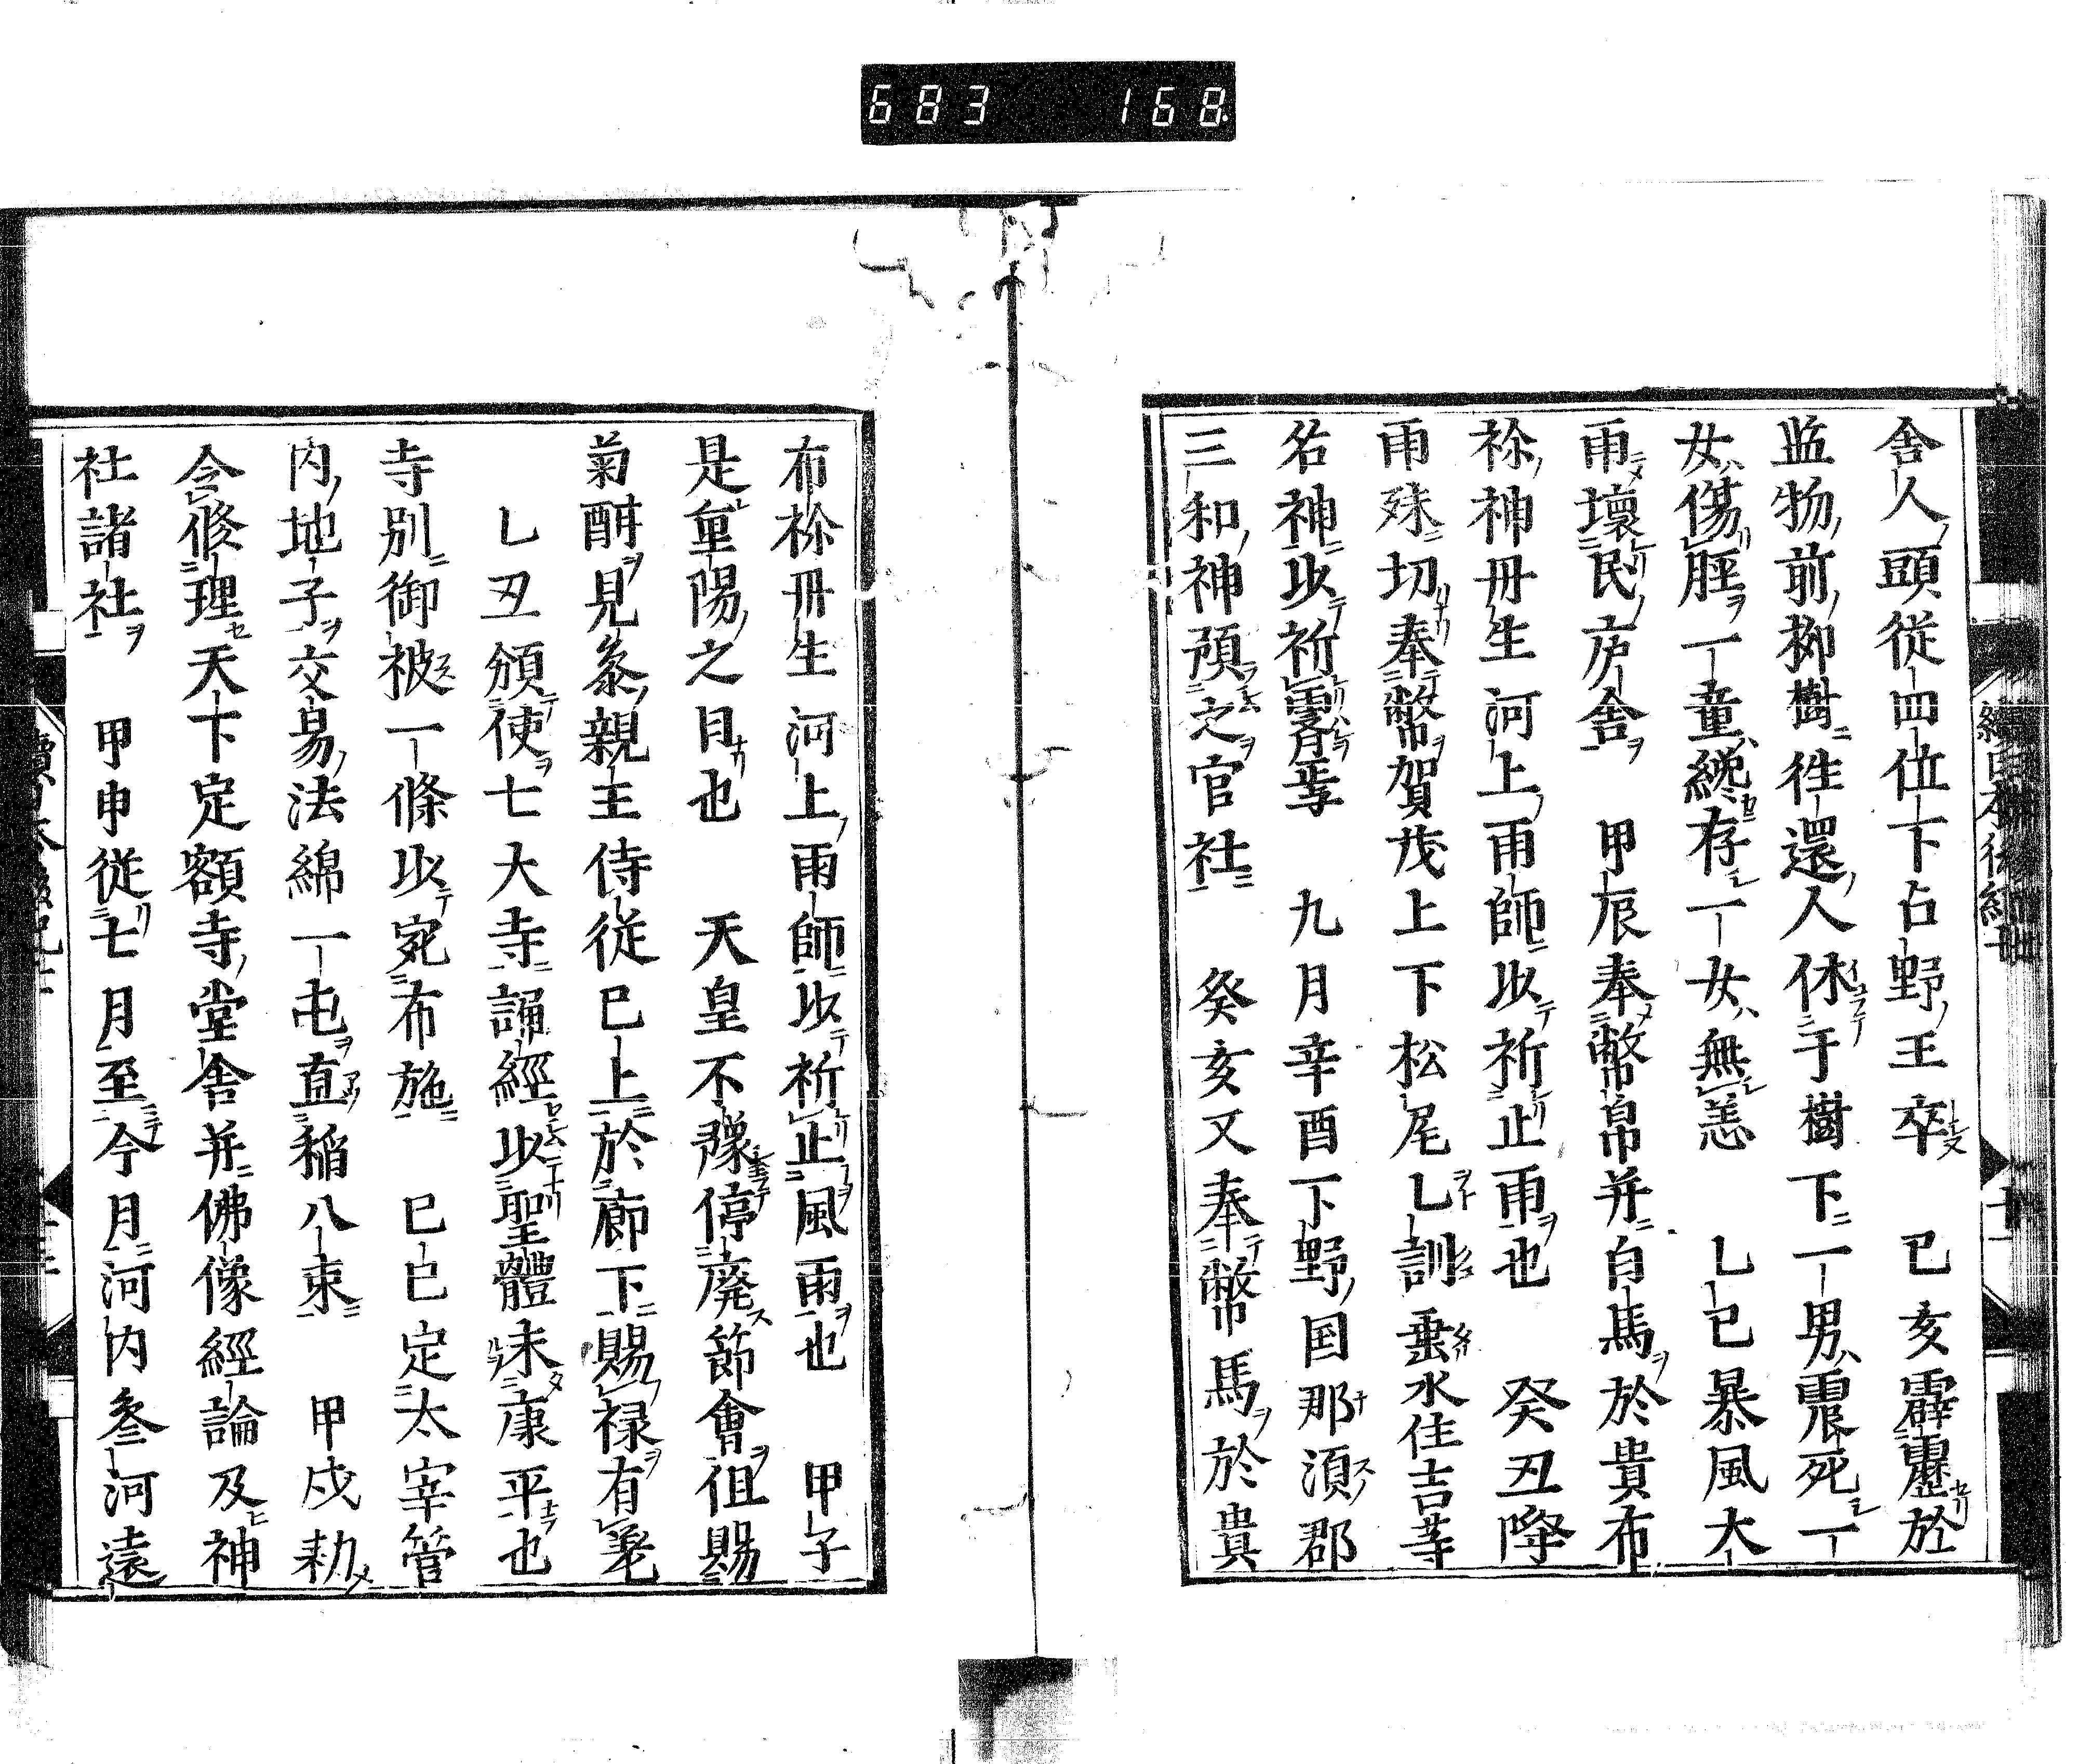 683 168
舎人頭従四位下占野王卒 己亥霹靂於
監物前栁樹徃還人休于樹下一男震死一
女傷脛一童纔存一女無恙 乙巳暴風大
雨壞民庐舎 甲辰奉幣帛并白馬於貴布
祢神丹生河上雨師以祈止雨也 癸丑降
雨殊切奉幣賀茂上下松尾乙訓垂水住吉等
名神以祈霽焉 九月辛酉下野国那湏郡
三和神預之官社 癸亥又奉幣馬於貴
布祢丹生河上雨師以祈止風雨也 甲子
是重陽之日也 天皇不豫停廃節會但賜
菊酎見参親王侍従已上於廊下賜禄有差
乙丑頒使七大寺誦經以聖體未康平也
寺別御被一條以宛布施 己巳定太宰管
内地子交易法綿一屯直稲八束 甲戌勑
令修理天下定額寺堂舎并佛像經論及神
社諸社 甲申従七月至今月河内叄河遠